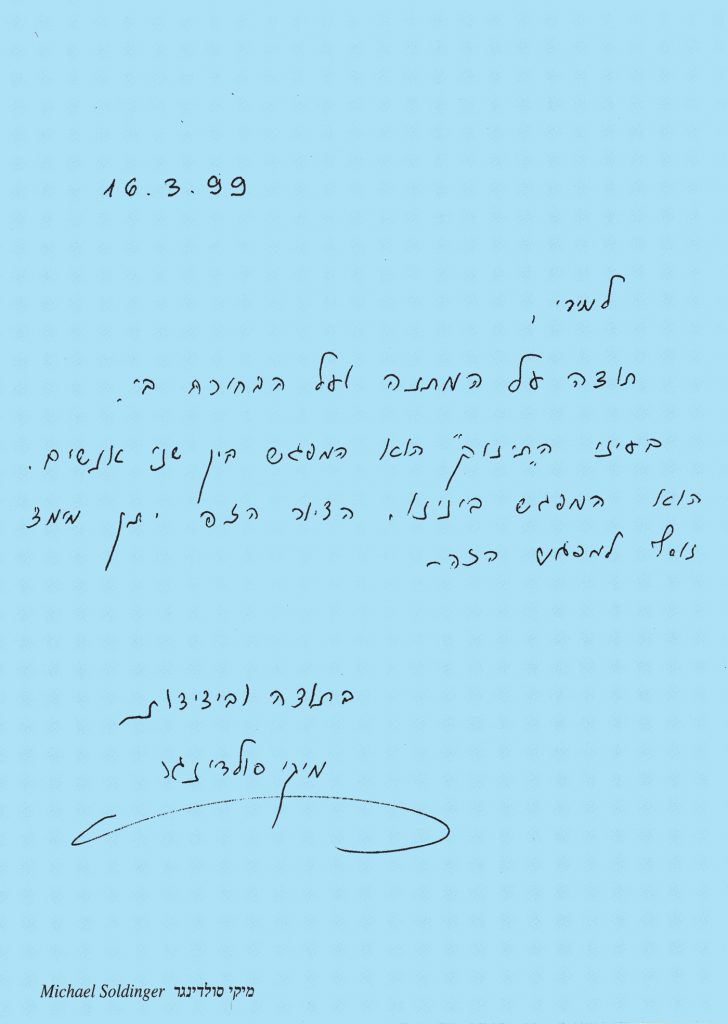 16.3.99
למירי,
תודה על המתנה ועל הבחירה בי.
בעיני "התינוק" הוא המפגש בין שני אנשים.
הוא המפגש בינינו. הציור הזה יתן מימד
נוסף למפגש הזה-
בתודה ובידידות
מיקי סולדינגר
Michael Soldinger מיקי סולדינגר